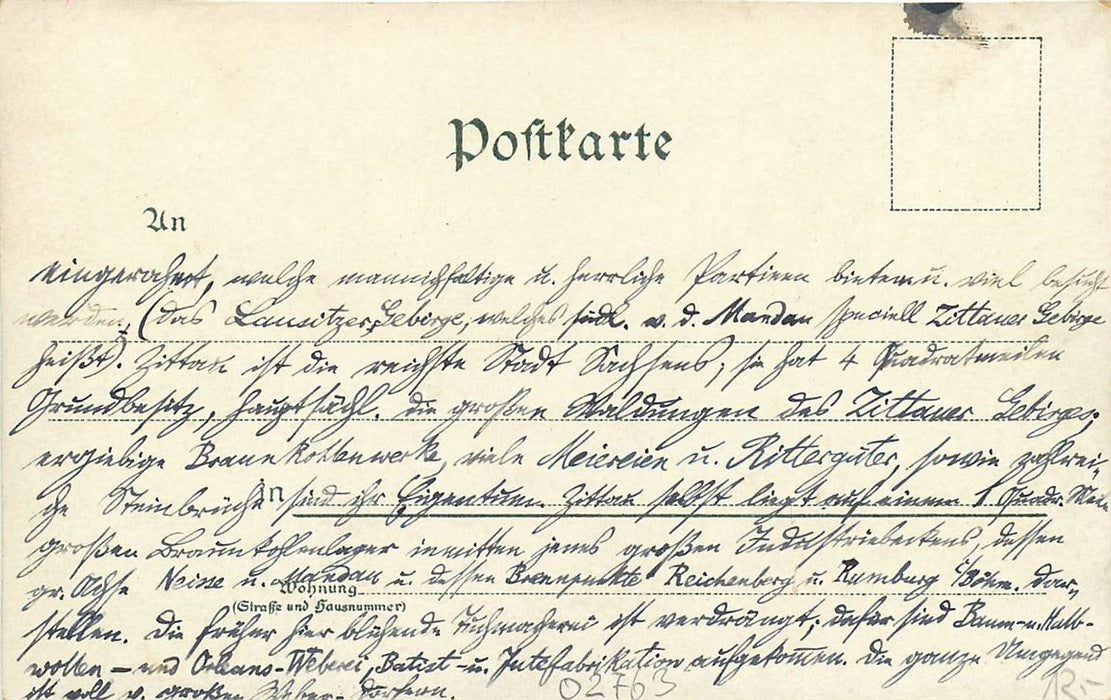 Postkarte
An
eingerahmt, welche mannichfaltige u. herrliche Partieen bieten u. viel besucht
werden, (das Lausitzer Gebirge, welches südl. v. d. Mandau speciell Zittauer Gebirge
heißt). Zittau ist die reichste Stadt Sachsens; sie hat 4 Quadratmeilen
Grundbesitz, hauptsächl. die großen Waldungen des Zittauer Gebirges;
ergiebige Braunkohlenwerke, viele Meiereien u. Rittergüter, sowie zahlrei-
che Steinbrüche sind ihr Eigentum. Zittau selbst liegt auf einem 1 Quadr. Meile
in
großen Braunkohlenlager inmitten jenes großen Industriebeckens, dessen
gr. Achse Neisse u. Mandau u. dessen Brennpunkte Reichenberg u. Rumburg i/Böhm. dar-
Wohnung
(Straße und Hausnummer)
stellen. Die früher hier blühende Tuchmacherei ist verdrängt; dafür sind Baum- u. Halb-
wollen - und Orleans-Weberei, Batist- u. Jutefabrikation aufgekommen. Die ganze Umgegend
ist voll v. großen Weber-Dörfern.
02763
12,-